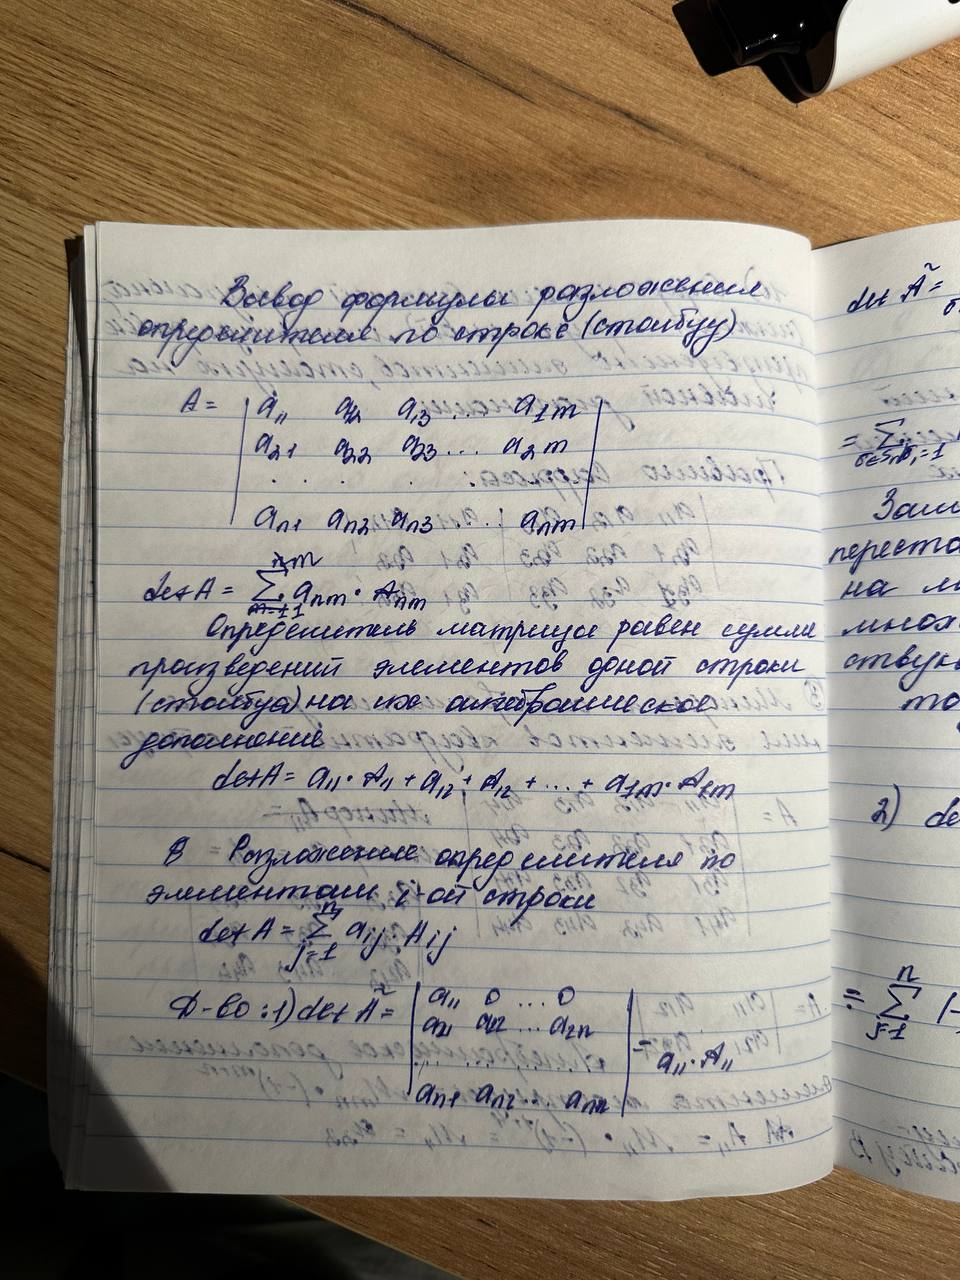 Вывод формулы разложения
определителя по строке (столбцу)
A = | a₁₁ a₁₂ a₁₃ ... a₁m |
| a₂₁ a₂₂ a₂₃ ... a₂m |
| . . . |
| aₙ₁ aₙ₂ aₙ₃ ... aₙm |
det A = Σ aₙm · Aₙm
Определитель матрицы равен сумме
произведений элементов одной строки
(столбца) на их алгебраическое
дополнение
det A = a₁₁ · A₁₁ + a₁₂ · A₁₂ + ... + a₁m · A₁m
Разложение определителя по
элементам i-ой строки
det A = Σⁿⱼ₌₁ aij Aij
Д-во: 1) det Ã = | a₁₁ 0 ... 0 |
| a₂₁ a₂₂ ... a₂ₙ |
| ... ... ... | = a₁₁ · A₁₁
| aₙ₁ aₙ₂ ... aₙₙ |
det Ã =
= Σ
Зам
переста
на м
множ
ству
то
2) de
= Σⁿⱼ₌₁ (-